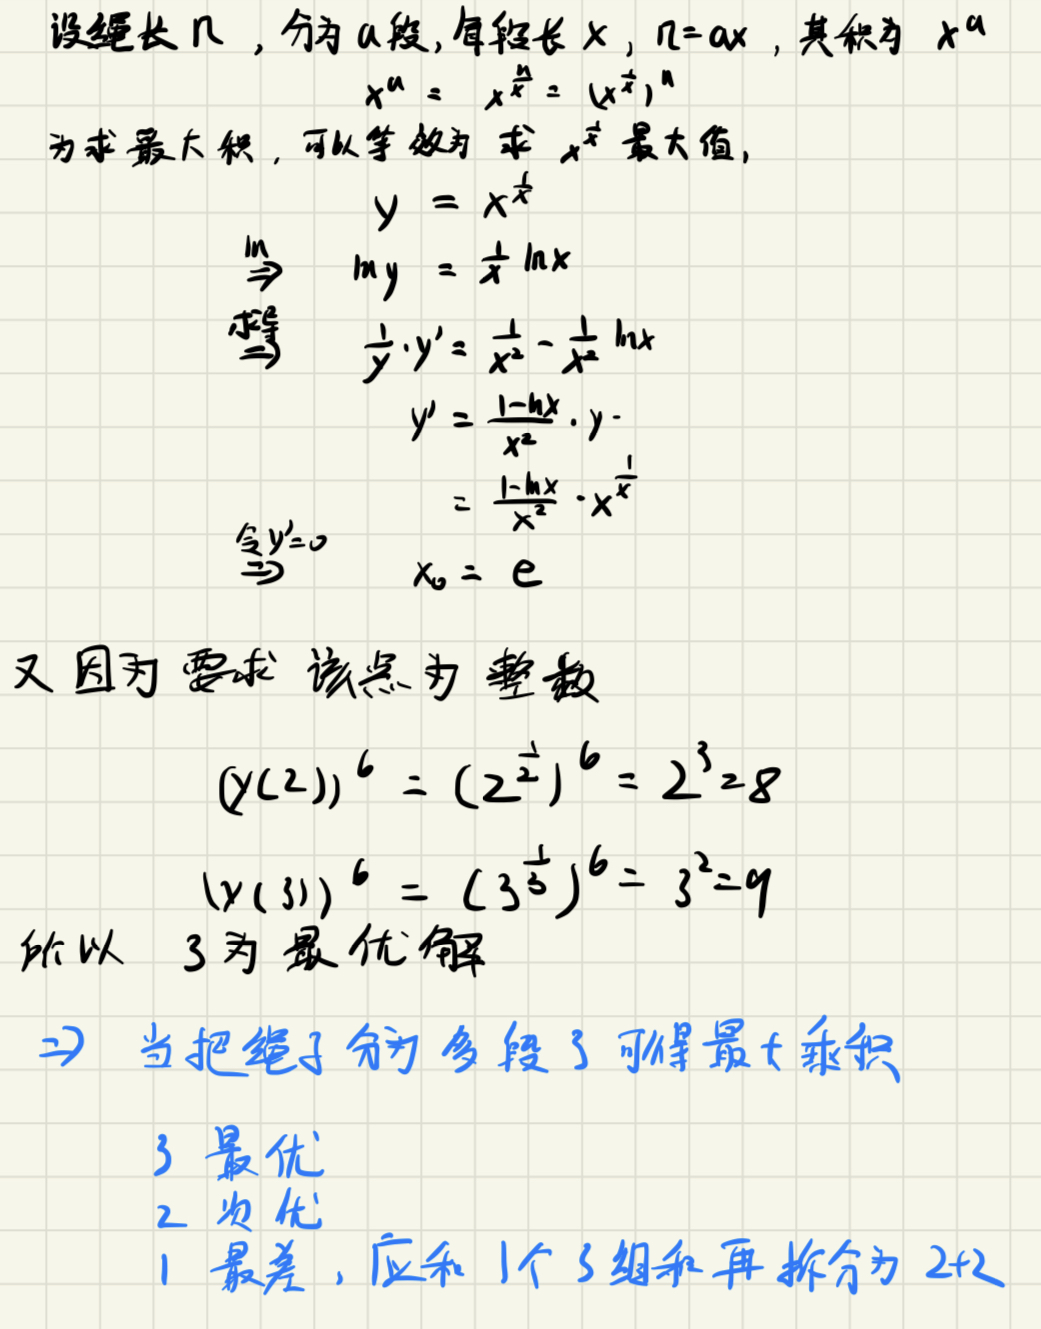 设绳长 n ,分为 a 段,每段长 x , n=ax ,其积为 x^a
x^a = x^{\frac{n}{x}} = (x^{\frac{1}{x}})^n
为求最大积,可以等效为 求 x^{\frac{1}{x}} 最大值,
y = x^{\frac{1}{x}}
ln ⇒ ln y = \frac{1}{x} ln x
求导 ⇒ \frac{1}{y}·y' = \frac{1}{x^2} - \frac{1}{x^2} ln x
y' = \frac{1-ln x}{x^2}·y
= \frac{1-ln x}{x^2}·x^{\frac{1}{x}}
令y'=0 ⇒ x_0 = e
又因为要求 该点为 整数
(y(2))^6 = (2^{\frac{1}{2}})^6 = 2^3 = 8
(y(3))^6 = (3^{\frac{1}{3}})^6 = 3^2 = 9
所以 3为最优解
⇒ 当把绳子分为多段3可得最大乘积
3 最优
2 次优
1 最差,应和1个3组和再拆分为2+2